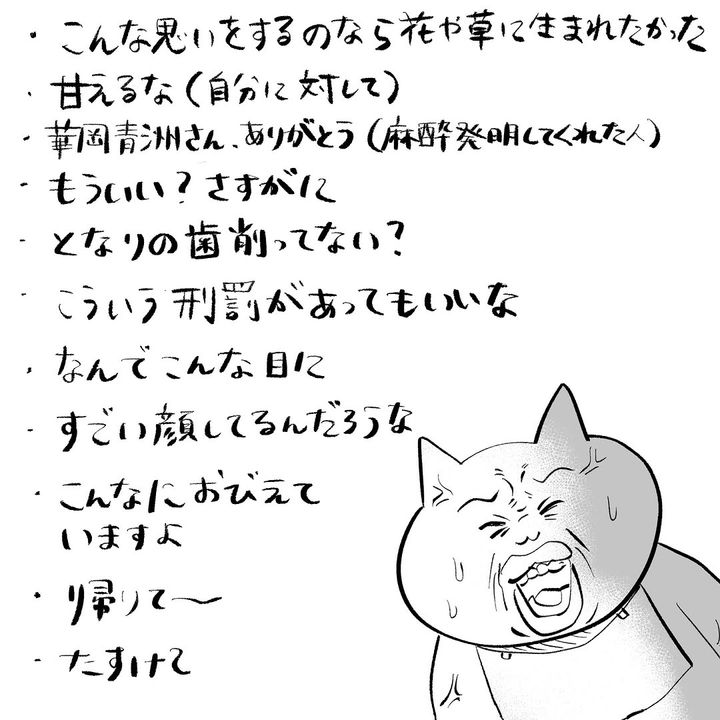 ・こんな思いをするのなら花や草に生まれたかった
・甘えるな(自分に対して)
・華岡青洲さん、ありがとう(麻酔発明してくれた人)
・もういい?さすがに
・となりの歯削ってない?
・こういう刑罰があってもいいな
・なんでこんな目に
・すごい顔してるんだろうな
・こんなにおびえて
いますよ
・帰りて〜
・たすけて